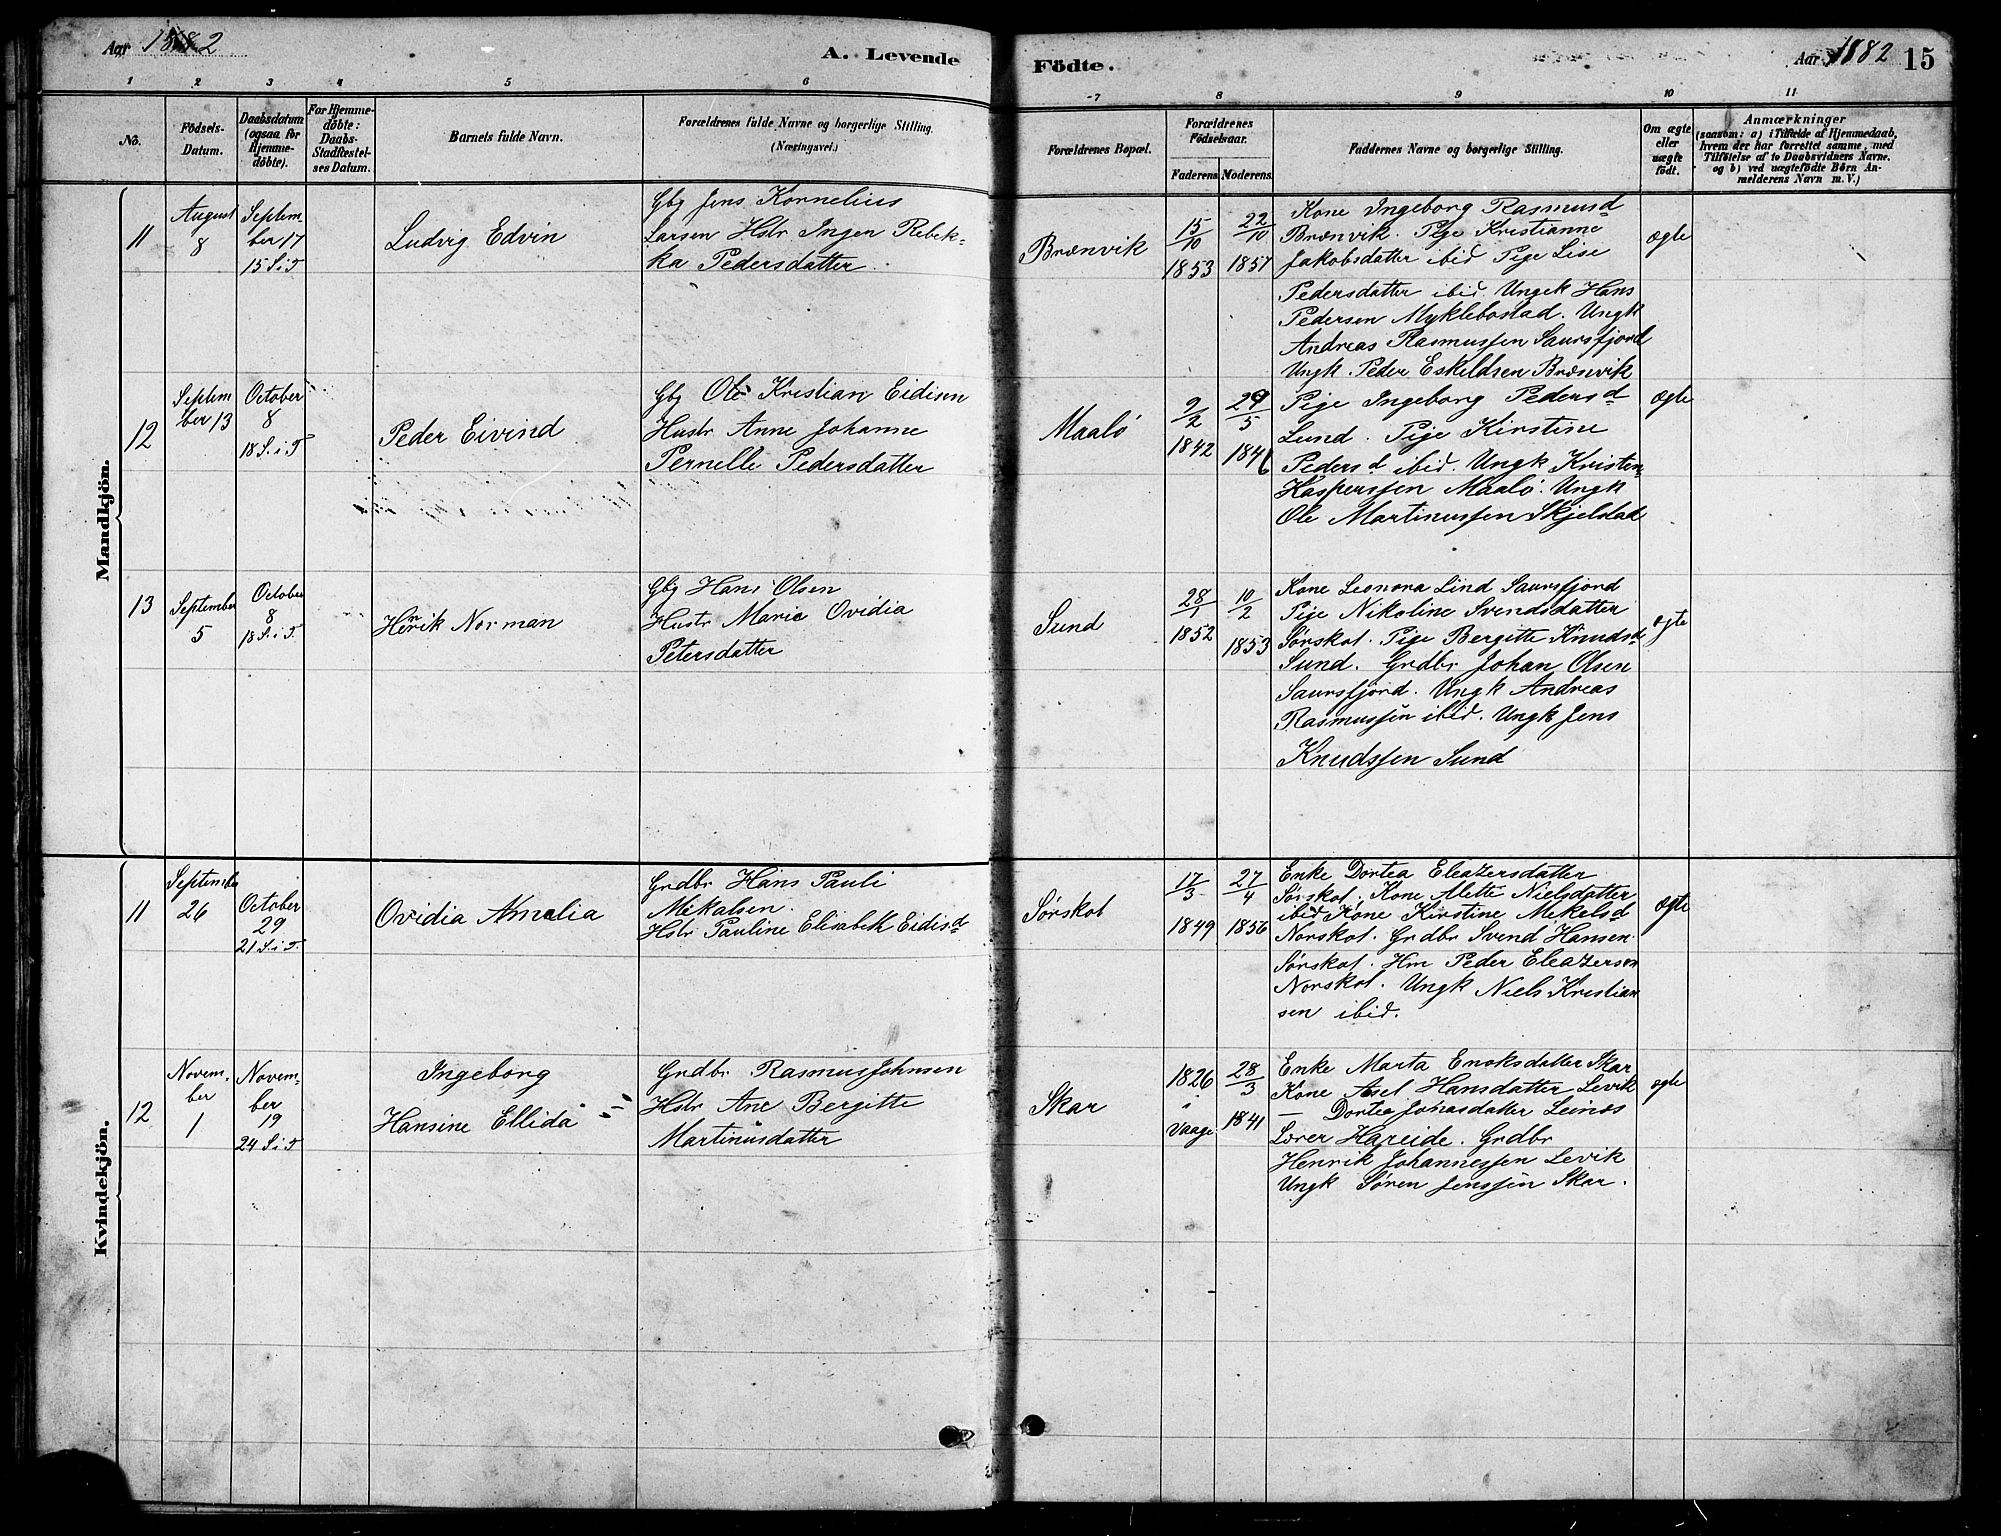 Aar 1882
A. Levende
1 2 3 4 5 6
No.
Födsels-
Datum.
Daabsdatum
(ogsaa for
Hjemme-
döbte).
For Hjemme-
döbte:
Daabs-
Stadfæstel-
ses Datum.
Barnets fulde Navn.
Forældrenes fulde Navne og borgerlige Stilling.
(Næringsvei.)
Mandkjön.
11
August
8
Septem
ber 17
15 S. i. T
Ludvig Edvin
Gbg Jens Kornelius
Larsen Hstr Ingen Rebek-
ka Pedersdatter.
12
Septem
ber 13
October
8
18 S. i. T
Peder Eivind
Gbg Ole Kristian Eidisen
Hustr Anne Johanne
Pernelle Pedersdatter
13
September
5
October
8
18 S. i. T
Henrik Norman
Gbg Hans Olsen
Hustr Marie Ovidia
Petersdatter
Kvindekjön.
11
September
26
October
29
21 S. i. T
Ovidia Amalia
Grdbr Hans Pauli
Mikalsen.
Hstr Pauline Elisabeth Eidisd
12
Novem-
ber
1
Novem-
ber
19
24 S. i. T
Ingeborg
Hansine Ellida
Grdbr Rasmus Johnsen
Hstr Ane Bergitte
Martinusdatter
Födte.
Aar 1882 15
7 8 9 10 11
Forældrenes Bopæl.
Forældrenes
Födselsaar.
Faderens. Moderens.
Faddernes Navne og borgerlige Stilling.
Om ægte
eller
uægte
födt.
Anmærkninger
(saasom: a) i Tilfælde af Hjemmedaab,
hvem der har forrettet samme, med
Tilföielse af to Daabsvidners Navne.
og b) ved uægtefödte Börn An-
melderens Navn m. V.)
Brænvik
15/10
1853
22/10
1857
Kone Ingeborg Rasmusd
Brænvik. Pige Kristianne
Jakobsdatter ibid Pige Lise
Pedersdatter ibid. Ungk Hans
Pedersen Myklebostad. Ungk
Andreas Rasmussen Saursfjord
Ungk. Peder Eskildsen Brænvik
ægte
Maalø
9/2
1842
29/5
1846
Pige Ingeborg Pedersd
Lund. Pige Kirstine
Pedersd ibid. Ungk Kristen
Kasperssen Maalø. Ungk
Ole Martinussen Skjelstad
ægte
Sund
28/1
1852
10/2
1853
Kone Leonora Lind Saursfjord
Pige Nikoline Svendsdatter
Sørskot. Pige Bergitte Knudsd
Sund. Grdbr Johan Olsen
Saursfjord. Ungk Andreas
Rasmussen ibid. Ungk Jens
Knudssen Sund
ægte
Sørskot
17/3
1849
27/4
1856
Enke Dortea Eleazersdatter
Sørskot. Kone Alette Nielsdatter
ibid Kone Kirstine Mikelsd
Norskot. Grdbr Svend Hansen
Sørskot. Hm Peder Eleazersen
Norskot. Ungk Niels Kristian
sen ibid.
ægte
Skar
1826
i
Vaage
28/3
1841
Enke Marta Enoksdatter Skar
Kone Asel Hansdatter Levik
— Dortea Jonasdatter Leines
Lærer Hareide. Grdbr
Henrik Johannessen Levik
Ungk Søren Jenssen Skar.
ægte